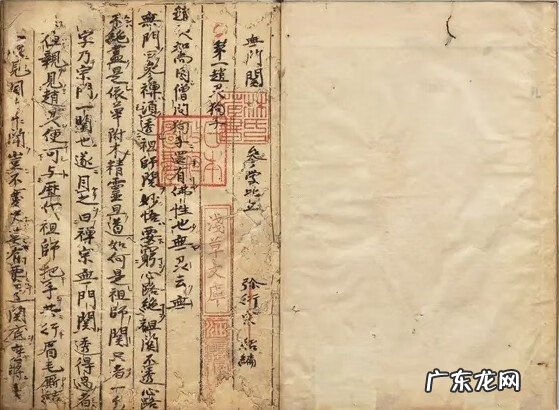 無門関 參学比丘 弥衍宗紹編
第一趙州狗子
趙州和尚因僧問狗子還有佛性也無州云無
無門曰參禪須透祖師関妙悟要窮心路絶祖関不透心路
不絶盡是依草附木精靈且道如何是祖師関只者一
字乃宗門一関也遂目之曰禪宗無門関透得過者
但親見趙州便可与歴代祖師把手共行眉毛厮結
眼見同耳聞豈不慶快莫有要透関底
林氏藏書
淺草文庫
广东龙网